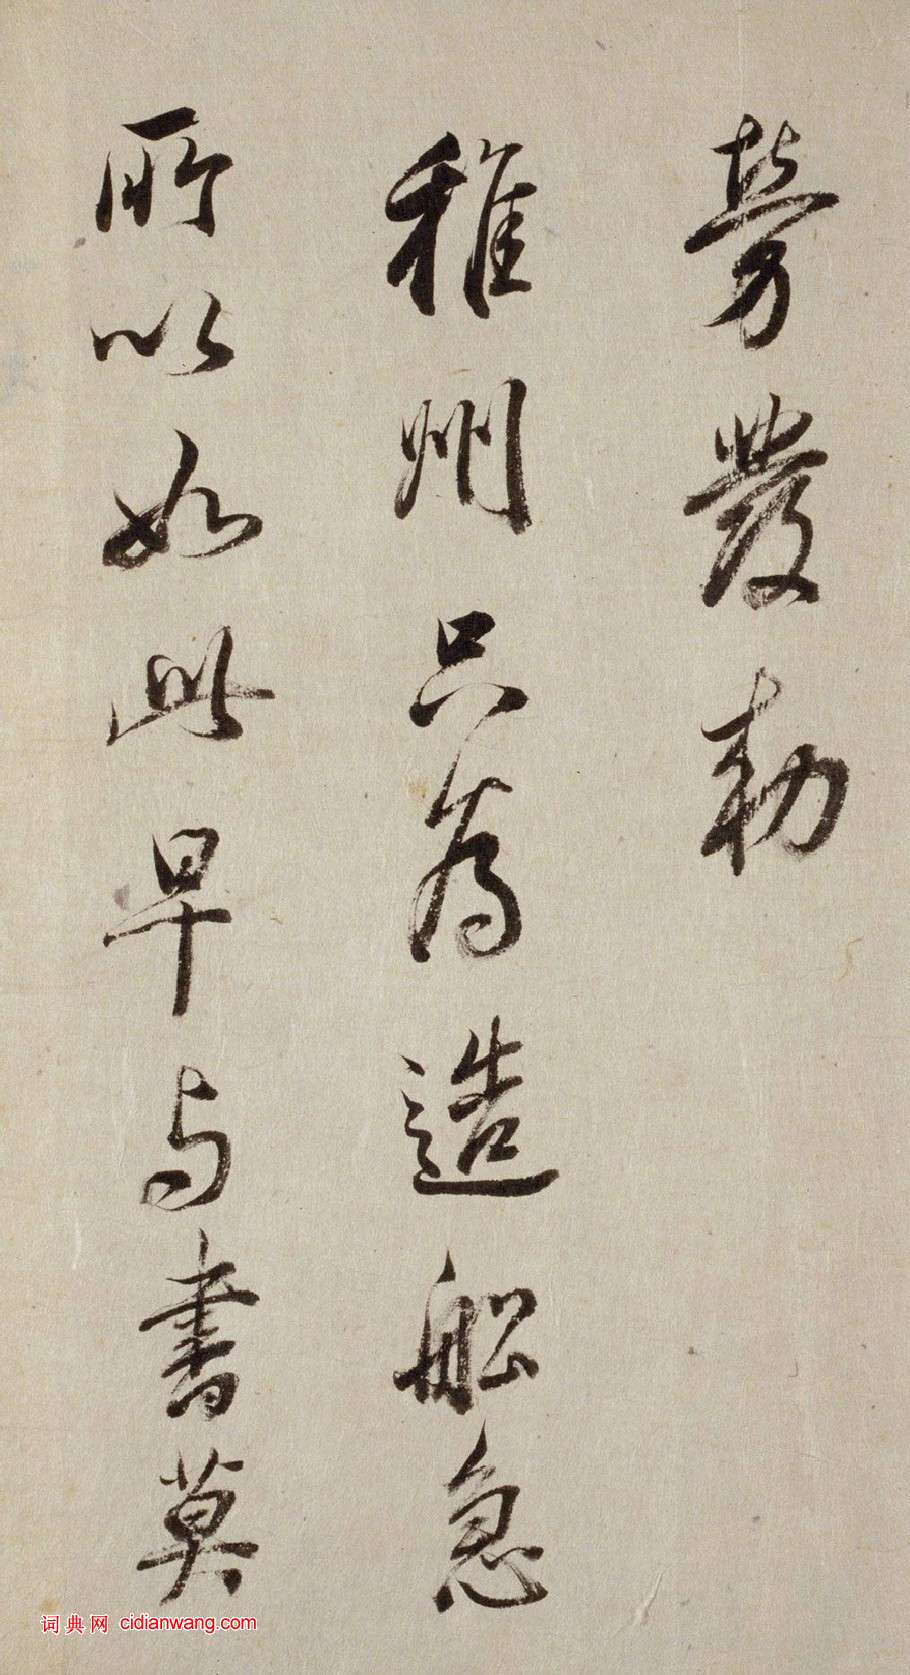 勞發勅
雍州只爲造舩急
所以如此早与書莫
词典网 cidianwang.com